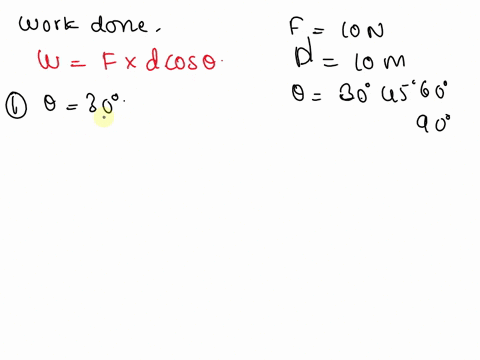 Work done.
W = F × d cosθ.
① θ = 30°.
F = 10 N
D = 10 M
θ = 30° 45° 60°
90°